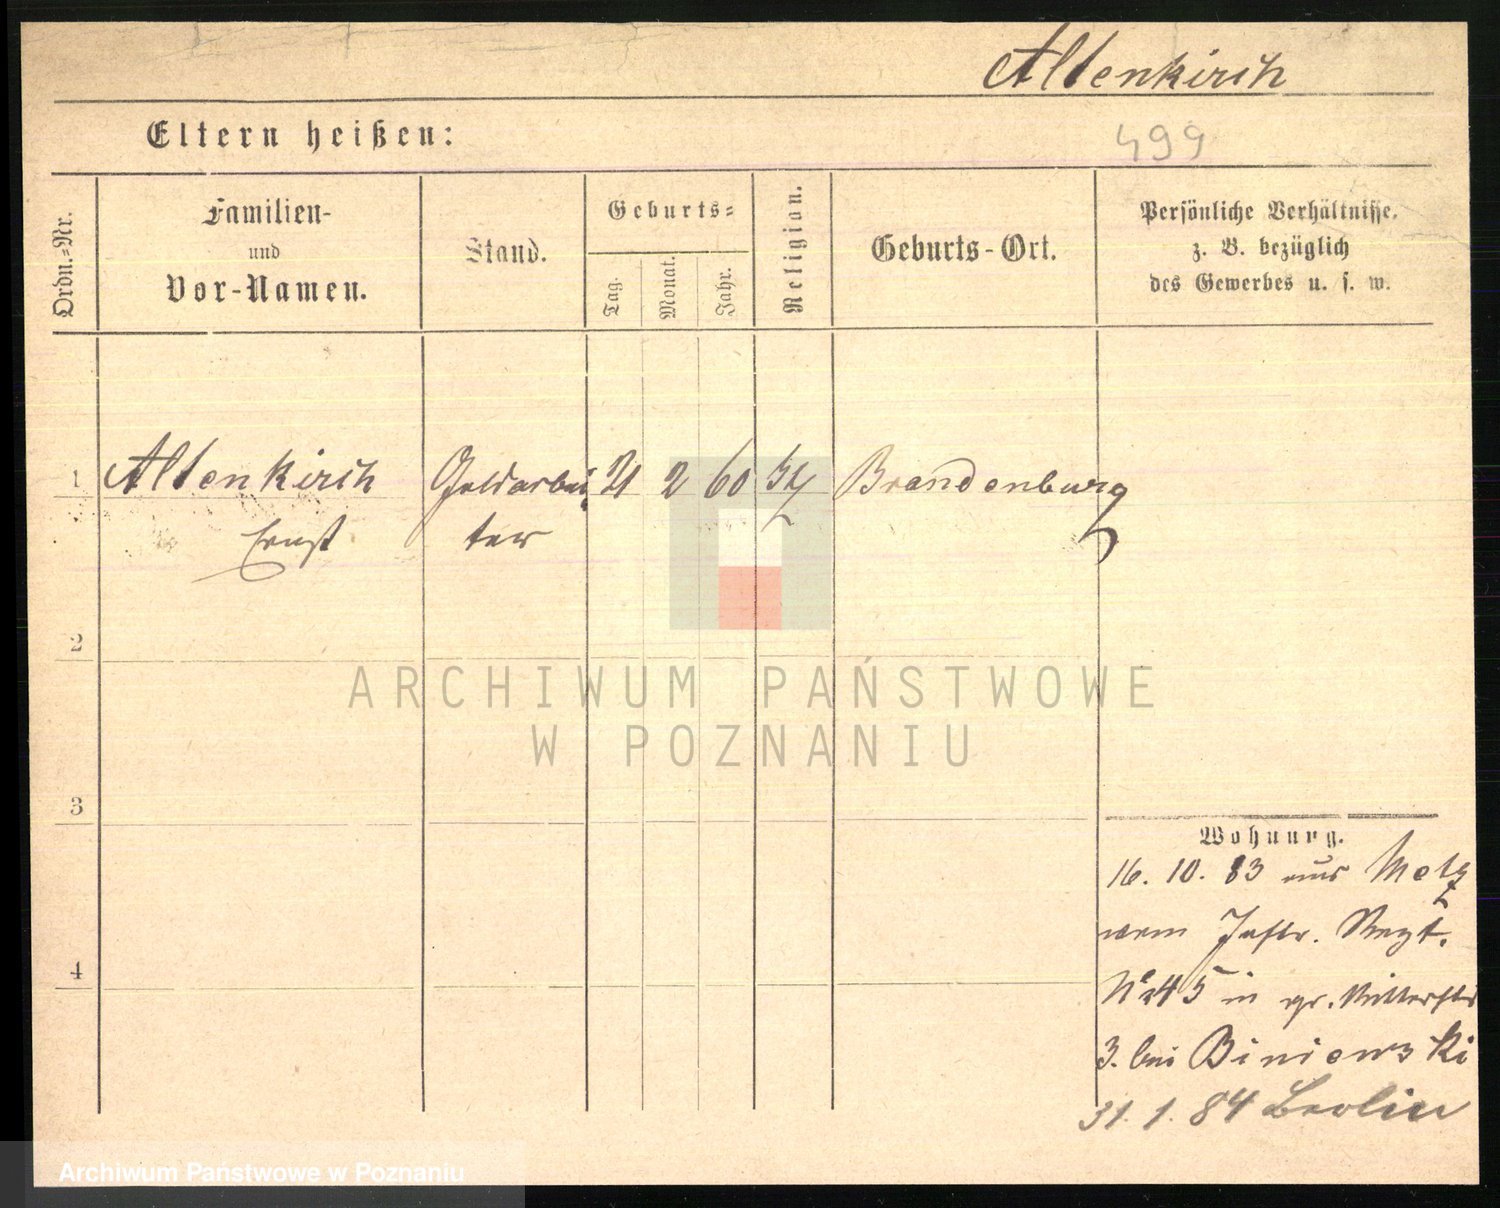 Altenkirch
Eltern heißen:
499
Ordn.-Nr.
Familien-
und
Vor-Namen.
Stand.
Geburts-
Tag.
Monat.
Jahr.
Religion.
Geburts-Ort.
Persönliche Verhältnisse.
z. B. bezüglich
des Gewerbes u. s. w.
1
Altenkirch Goldarbei 21 2 60 Brandenburg
Ernst ter
2
ARCHIWUM PAŃSTWOWE
W POZNANIU
3
Wohnung.
16. 10. 83 aus Metz
vom Inftr. Regt.
4
No 45 in gr. Ritterstr
3. bei Biniewski
31. 1. 84 Berlin
Archiwum Państwowe w Poznaniu